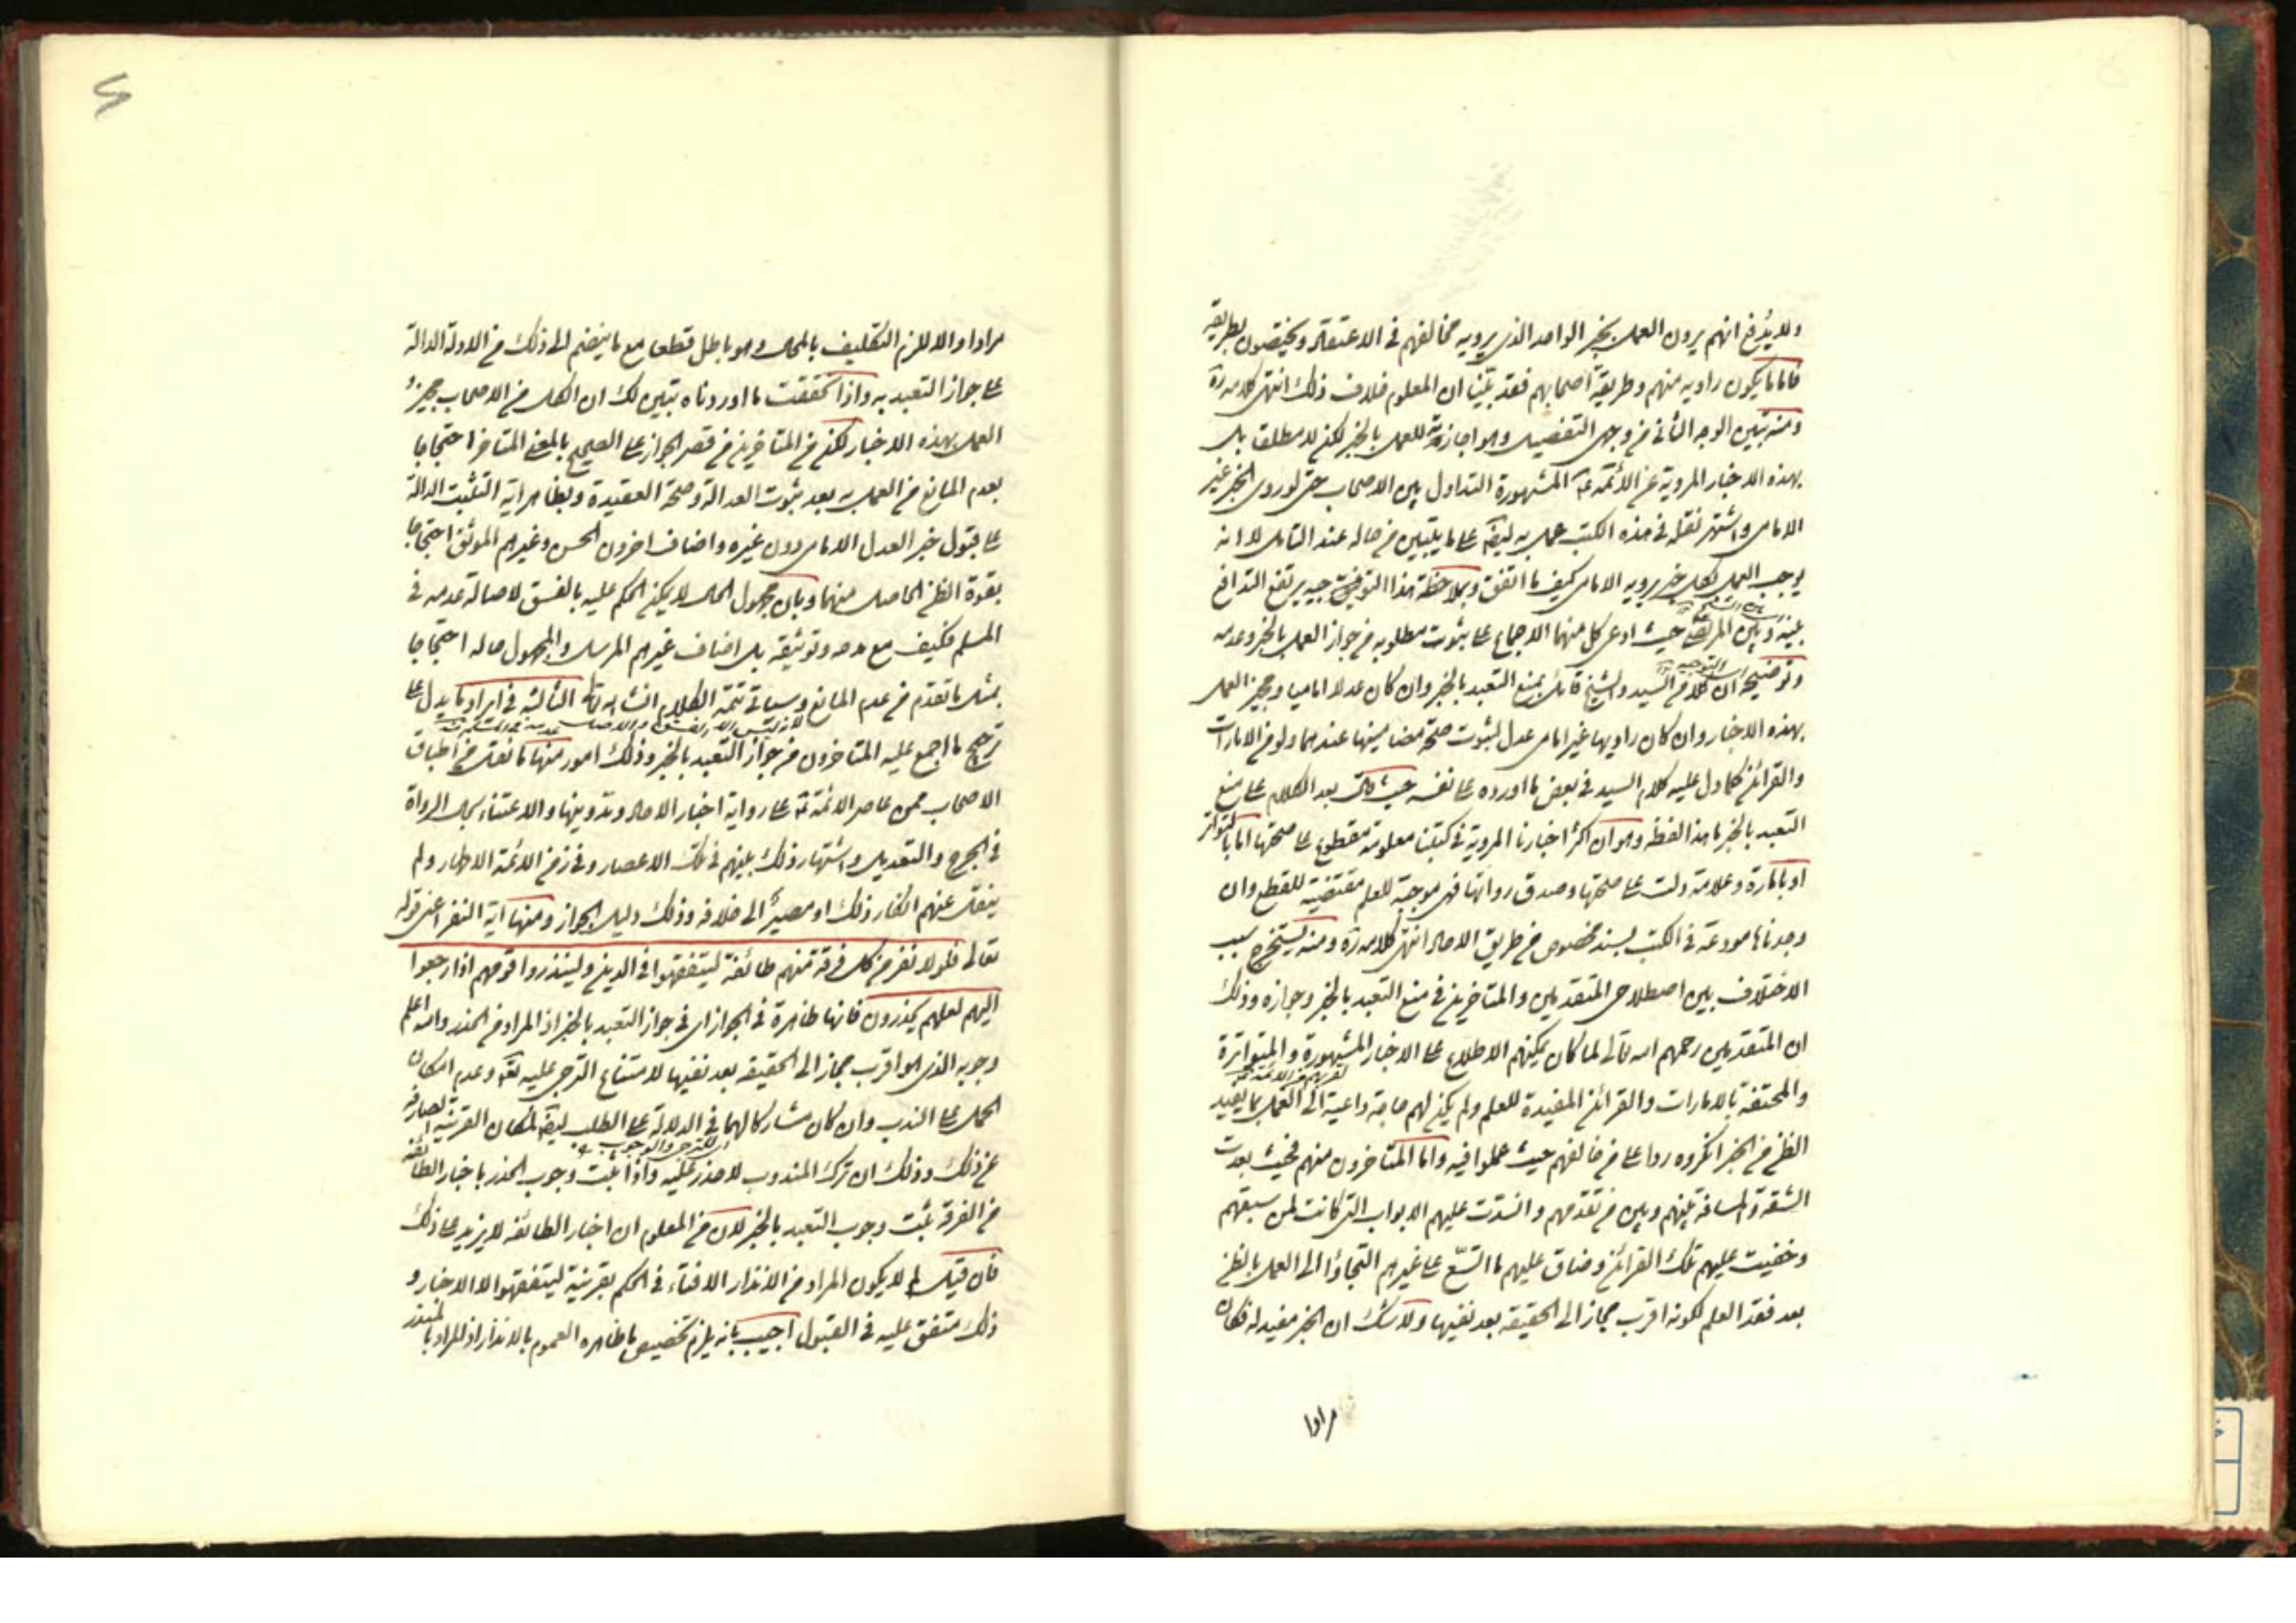 ولا يدفع انهم يرون العمل بخبر الواحد الذى يرويه مخالفهم فى الاعتقاد ويختصون بطريقه
فاما ما يكون راويه منهم وطريقة اصحابهم فقد بينا ان المعلوم خلاف ذلك انتهى كلامه ره
ومنه تبين الوجه الثانى من وجهى التفصيل وهو اجازته للعمل بالخبر لكن لا مطلقا بل
بهذه الاخبار المروية عن الأئمة المشهورة التداول بين الاصحاب حتى لو روى الخبر غير
الامامى واشتهر نقله فى هذه الكتب عمل به ايضا على ما يتبين من حاله عند التامل لا انه
يوجب العمل بكل خبر يرويه الامامى كيف ما اتفق وبملاحظة هذا التوفيق جيه يرتفع التدافع
بينه وبين المرتضى حيث ادعى كل منهما الاجماع على ثبوت مطلوبه من جواز العمل بالخبر وعدمه
وتوضيحه ان كلا من السيد والشيخ قائل بمنع التعبد بالخبر وان كان عدلا اماميا ومجيز العمل
بهذه الاخبار وان كان راويها غير امامى عدل لثبوت صحة مضامينها عندهما ولو من الامارات
والقرائن كما دل عليه كلام السيد فى بعض ما اورده على نفسه حيث قال بعد الكلام على منع
التعبد بالخبر ما هذا لفظه وهو ان اكثر اخبارنا المروية فى كتبنا معلومة مقطوع على صحتها اما بالتواتر
او بامارة وعلامة دلت على صحتها وصدق رواتها فهى موجبة للعلم مقتضية للقطع وان
وجدناها مودعة فى الكتب بسند مخصوص من طريق الاحاد انتهى كلامه ره ومنه يستخرج سبب
الاختلاف بين اصطلاحى المتقدمين والمتاخرين فى منع التعبد بالخبر وجوازه وذلك
ان المتقدمين رحمهم الله تعالى لما كان يمكنهم الاطلاع على الاخبار المشهورة والمتواترة
والمحتفة بالامارات والقرائن المفيدة للعلم ولم يكن لهم حاجة داعية الى العمل بما يفيد
الظن من الخبر انكروه ردا على من خالفهم حيث عملوا فيه واما المتاخرون منهم فحيث بعدت
الشقة والمسافة بينهم وبين من تقدمهم وانسدت عليهم الابواب التى كانت لمن سبقهم
وخفيت عليهم تلك القرائن وضاق عليهم ما اتسع على غيرهم التجاؤا الى العمل بالظن
بعد فقد العلم لكونه اقرب مجاز الى الحقيقة بعد نفيها ولا شك ان الخبر مفيد له فكان
مرادا
مرادا والا لزم التكليف بالمحال وهو باطل قطعا مع ما ينضم الى ذلك من الادلة الدالة
على جواز التعبد به واذا تحققت ما اوردناه تبين لك ان الكل من الاصحاب مجيزو
العمل بهذه الاخبار لكن من المتاخرين من قصر الجواز على الصحيح بالمعنى المتاخر احتجاجا
بعدم المانع من العمل به بعد ثبوت العدالة وصحة العقيدة وبظاهر اية التثبت الدالة
على قبول خبر العدل الامامى دون غيره واضاف اخرون الحسن وغيرهم الموثق احتجاجا
بقوة الظن الحاصل منهما وبان مجهول الحال لا يمكن الحكم عليه بالفسق لاصالة عدمه فى
المسلم فكيف مع مدحه وتوثيقه بل اضاف غيرهم المرسل والمجهول حاله احتجاجا
بمثل ما تقدم من عدم المانع وسياتى تتمة الكلام انشاء الله الثالثة فى ايراد ما يدل على
ترجيح ما اجمع عليه المتاخرون من جواز التعبد بالخبر وذلك امور منها ما نقل من اطباق
الاصحاب ممن عاصر الائمة على رواية اخبار الاحاد وتدوينها والاعتناء بحال الرواة
فى الجرح والتعديل واشتهار ذلك بينهم فى تلك الاعصار وفى زمن الائمة الاطهار ولم
ينقل عنهم انكار ذلك او مصير الى خلافه وذلك دليل الجواز ومنها اية النفر اعنى قوله
تعالى فلولا نفر من كل فرقة منهم طائفة ليتفقهوا فى الدين ولينذروا قومهم اذا رجعوا
اليهم لعلهم يحذرون فانها ظاهرة فى الجواز اى فى جواز التعبد بالخبر اذ المراد من الحذر والله اعلم
وجوبه الذى هو اقرب مجاز الى الحقيقة بعد نفيها لامتناع الترجى عليه تعالى وعدم امكان
الحمل على الندب وان كان مشاركا لهما فى الدلالة على الطلب ايضا لمكان القرينة الصارفة
عن ذلك وذلك ان ترك المندوب لا حذر عليه واذا ثبت وجوب الحذر باخبار الطائفة
من الفرقة ثبت وجوب التعبد بالخبر لان من المعلوم ان اخبار الطائفة لا يزيد على ذلك
فان قيل لم لا يكون المراد من الانذار الافتاء فى الحكم بقرينة ليتفقهوا لا الاخبار و
ذلك متفق عليه فى القبول اجيب بانه يلزم تخصيص ما ظاهره العموم بالانذار اذ المراد بالمنذر